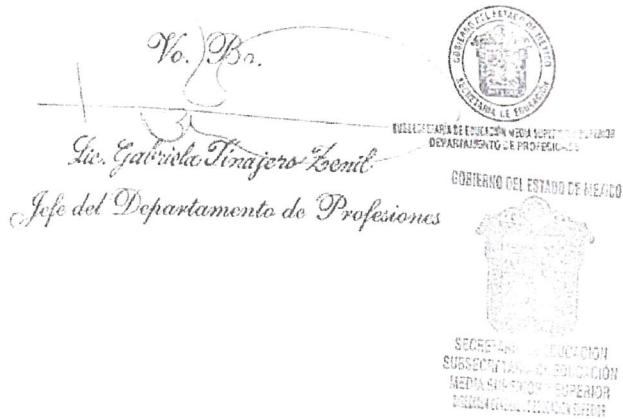 Vo. Bo.
Lic. Gabriela Tinajero Zenil
Jefe del Departamento de Profesiones
GOBIERNO DEL ESTADO DE MEXICO
SECRETARIA DE EDUCACIÓN
SUBSECRETARÍA DE EDUCACIÓN MEDIA SUPERIOR Y SUPERIOR
DEPARTAMENTO DE PROFESIONES
GOBIERNO DEL ESTADO DE MEXICO
SECRETARIA DE EDUCACION
SUBSECRETARIA DE EDUCACIÓN
MEDIA SUPERIOR Y SUPERIOR